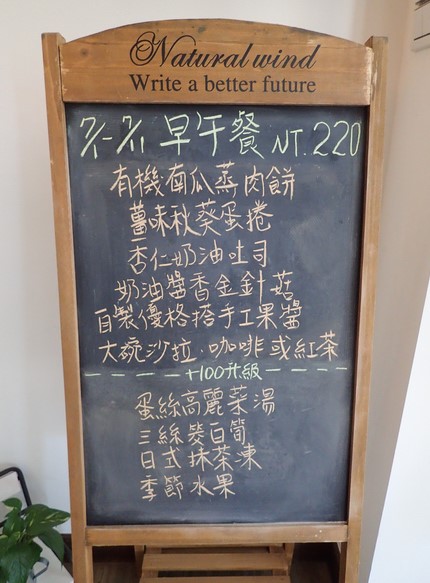 Natural wind
Write a better future
7/1-7/1 早午餐 NT.220
有機南瓜蒸肉餅
薑味秋葵蛋捲
杏仁奶油吐司
奶油醬香金針菇
自製優格搭手工果醬
大碗沙拉.咖啡或紅茶
+100升級
蛋絲高麗菜湯
三絲筊白筒
日式抹茶凍
季節水果